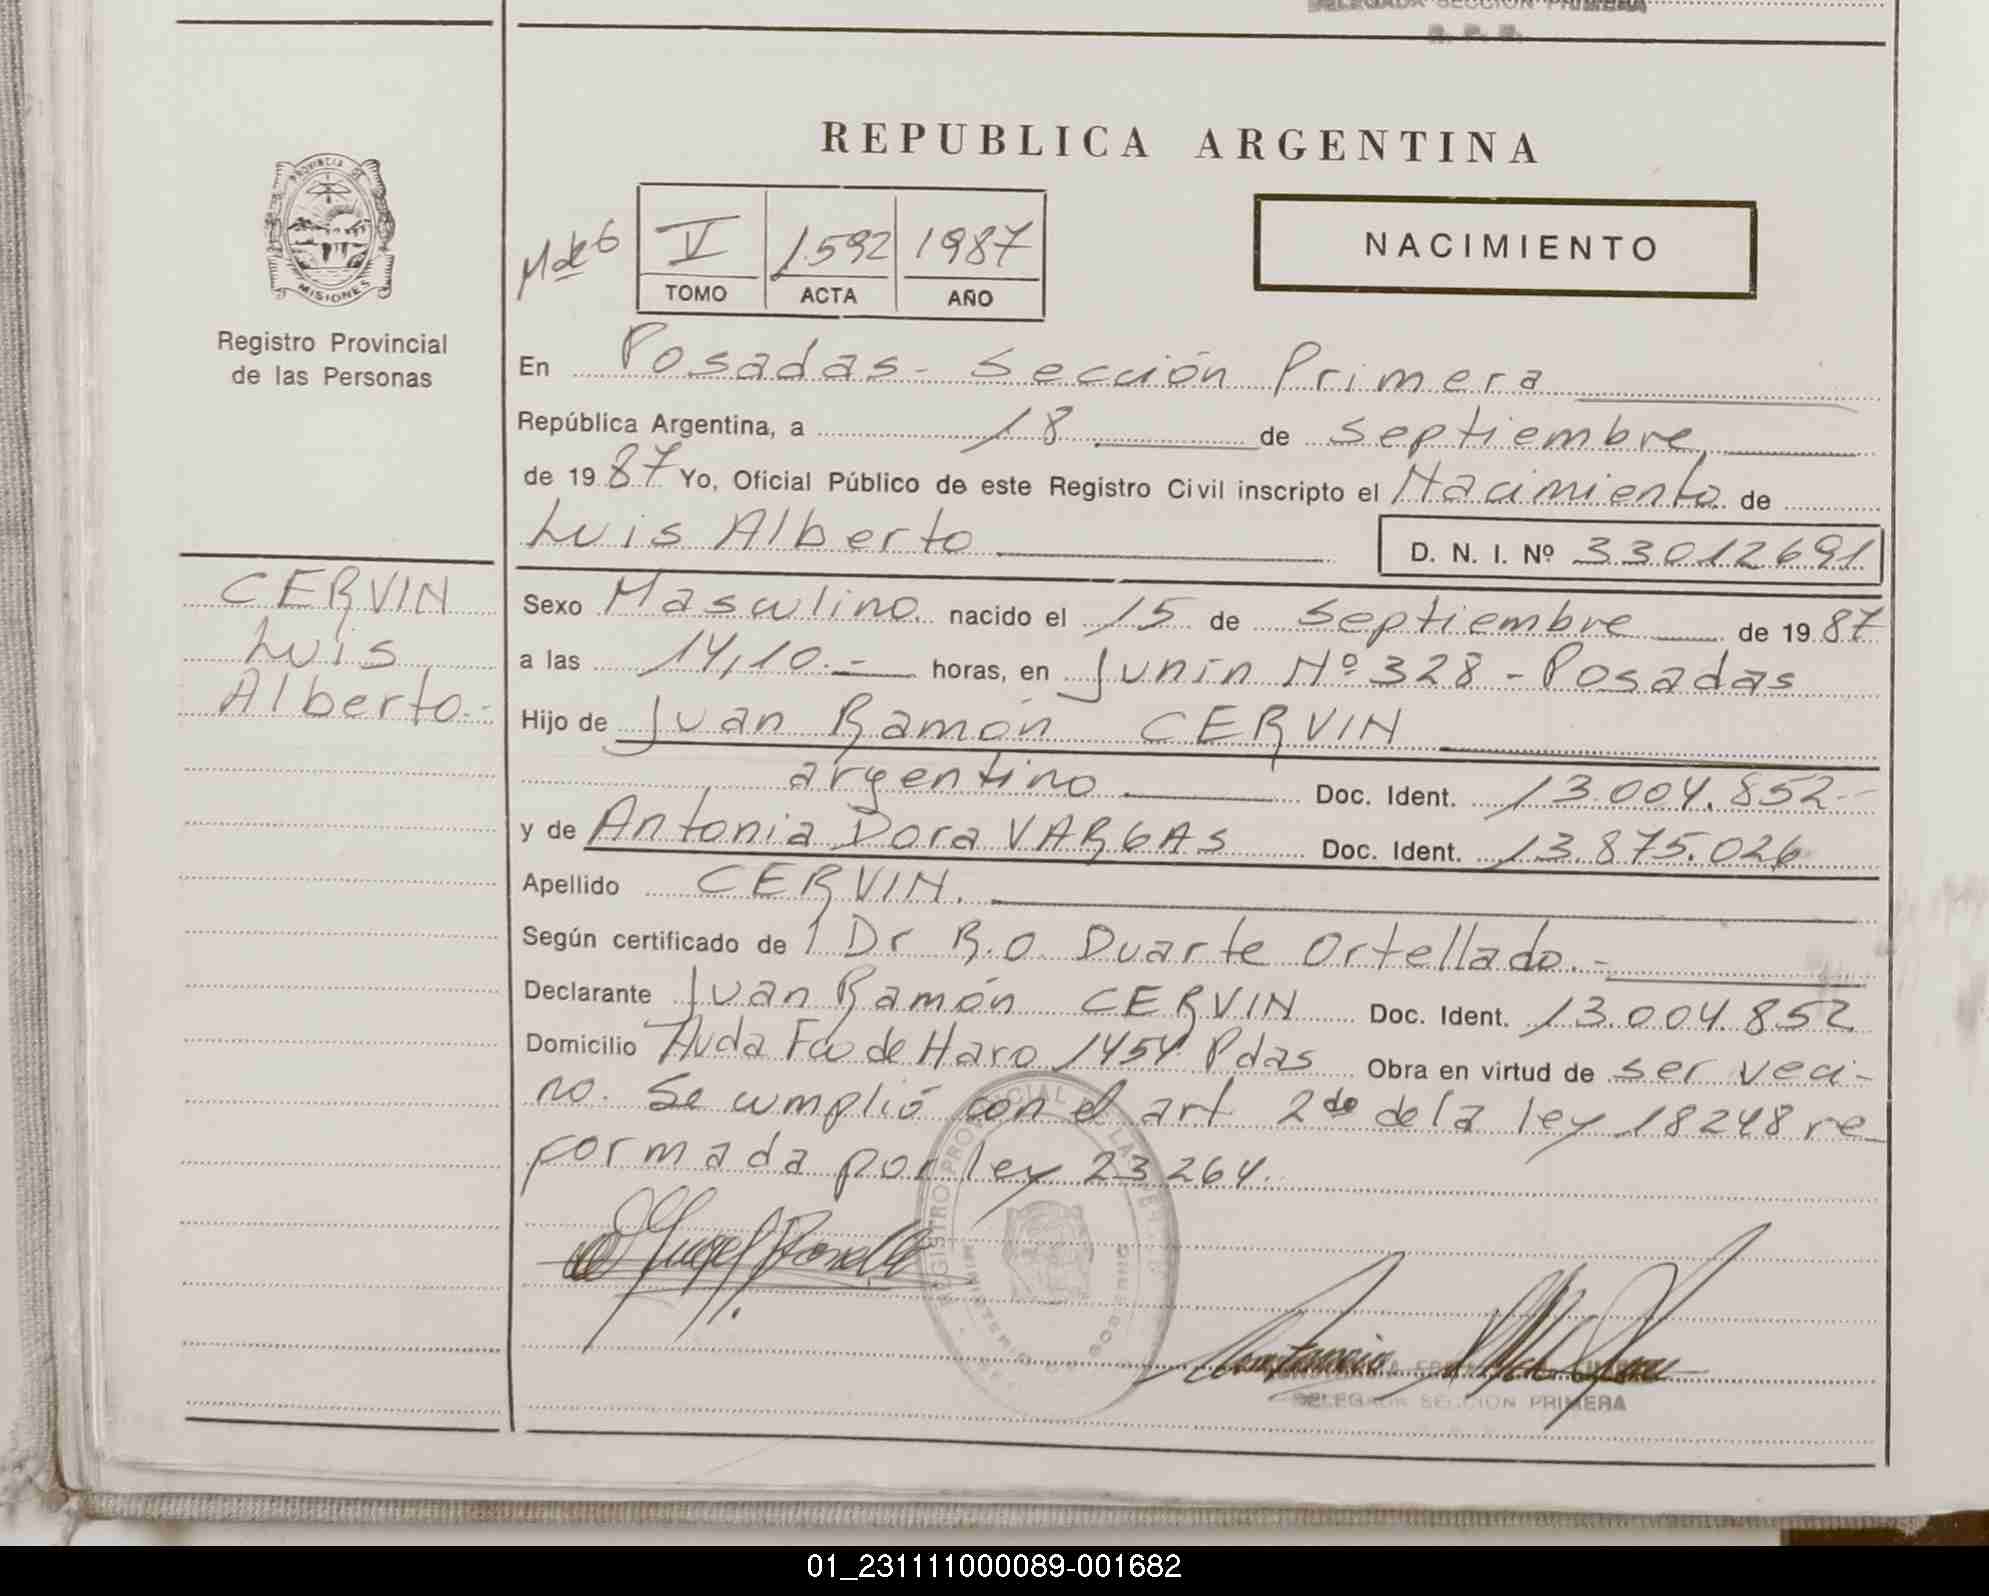 DELEGADA SECCION PRIMERA
R. P. P.
REPUBLICA ARGENTINA
PROVINCIA DE
MISIONES
Registro Provincial
de las Personas
V 1592 1987
TOMO ACTA AÑO
NACIMIENTO
En Posadas - Sección Primera
República Argentina, a 18 de septiembre
de 1987 Yo, Oficial Público de este Registro Civil inscripto el Nacimiento de
Luis Alberto D. N. I. Nº 33012691
CERVIN
Luis
Alberto.-
Sexo Masculino nacido el 15 de septiembre de 1987
a las 14,10.- horas, en Junín Nº 328 - Posadas
Hijo de Juan Ramón CERVIN
argentino Doc. Ident. 13.004.852.-
y de Antonia Dora VARGAS Doc. Ident. 13.875.026
Apellido CERVIN.
Según certificado de 1 Dr R.O. Duarte Ortellado.-
Declarante Juan Ramón CERVIN Doc. Ident. 13.004.852
Domicilio Avda Fco de Haro 1454 Pdas Obra en virtud de ser veci-
no. Se cumplió con el art 2do de la ley 18248 re-
formada por ley 23264.
DELEGADA SECCION PRIMERA
01_231111000089-001682